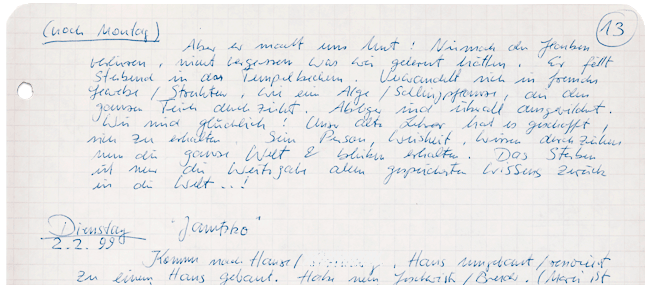 (noch Montag) 13
Aber er macht uns Mut! Niemals den Glauben
verlieren, nicht vergessen was wir gelernt hätten. Er fällt
sterbend in das Tempelbecken. Verwandelt sich in fremdes
Gewebe / Strukturen, wie eine Alge / Schlingpflanze, die den
ganzen Teich durchzieht. Ableger sind überall ausgewildert.
Wir sind glücklich! Unser alter Lehrer hat es geschafft,
sich zu erhalten. Sein Person, Weisheit, Wissen durchziehen
nun die ganze Welt & bleiben erhalten. Das Sterben
ist nur die Weitergabe allen gespeicherten Wissens zurück
in die Welt...!
Dienstag "
2.2.99
Komme nach Hause / Haus umgebaut /
zu einem Haus gebaut. Habe (